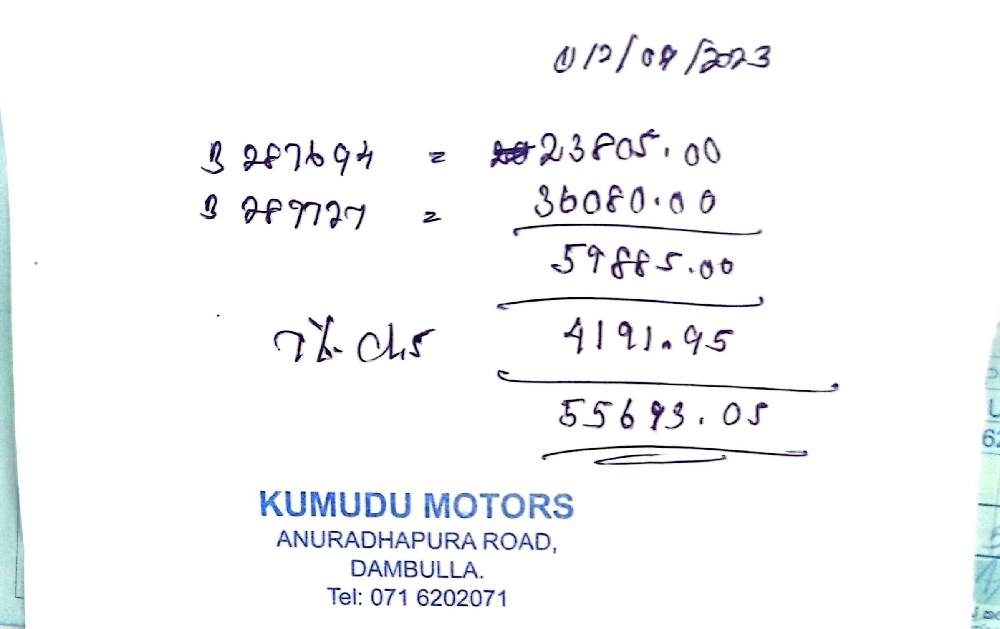 12/09/2023
B 287694 = 23805.00
B 289727 = 36080.00
59885.00
7% dis 4191.95
55693.05
KUMUDU MOTORS
ANURADHAPURA ROAD,
DAMBULLA.
Tel: 071 6202071